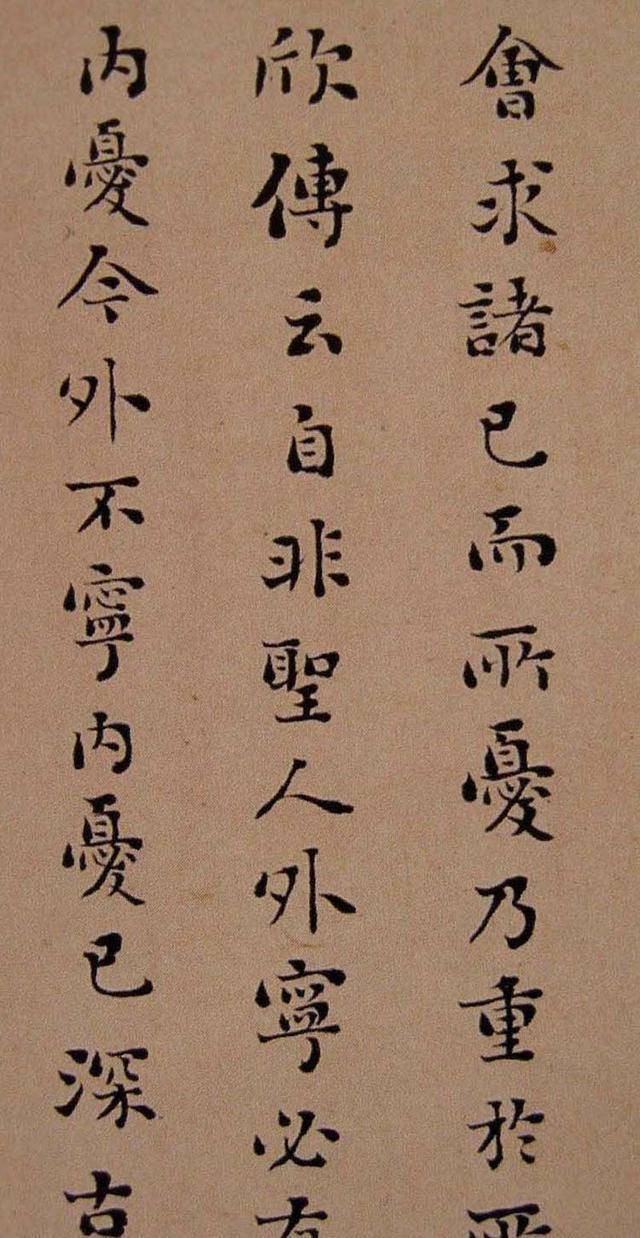 會求諸己而所憂乃重於所
欣傳云自非聖人外寧必有
内憂今外不寧内憂已深古